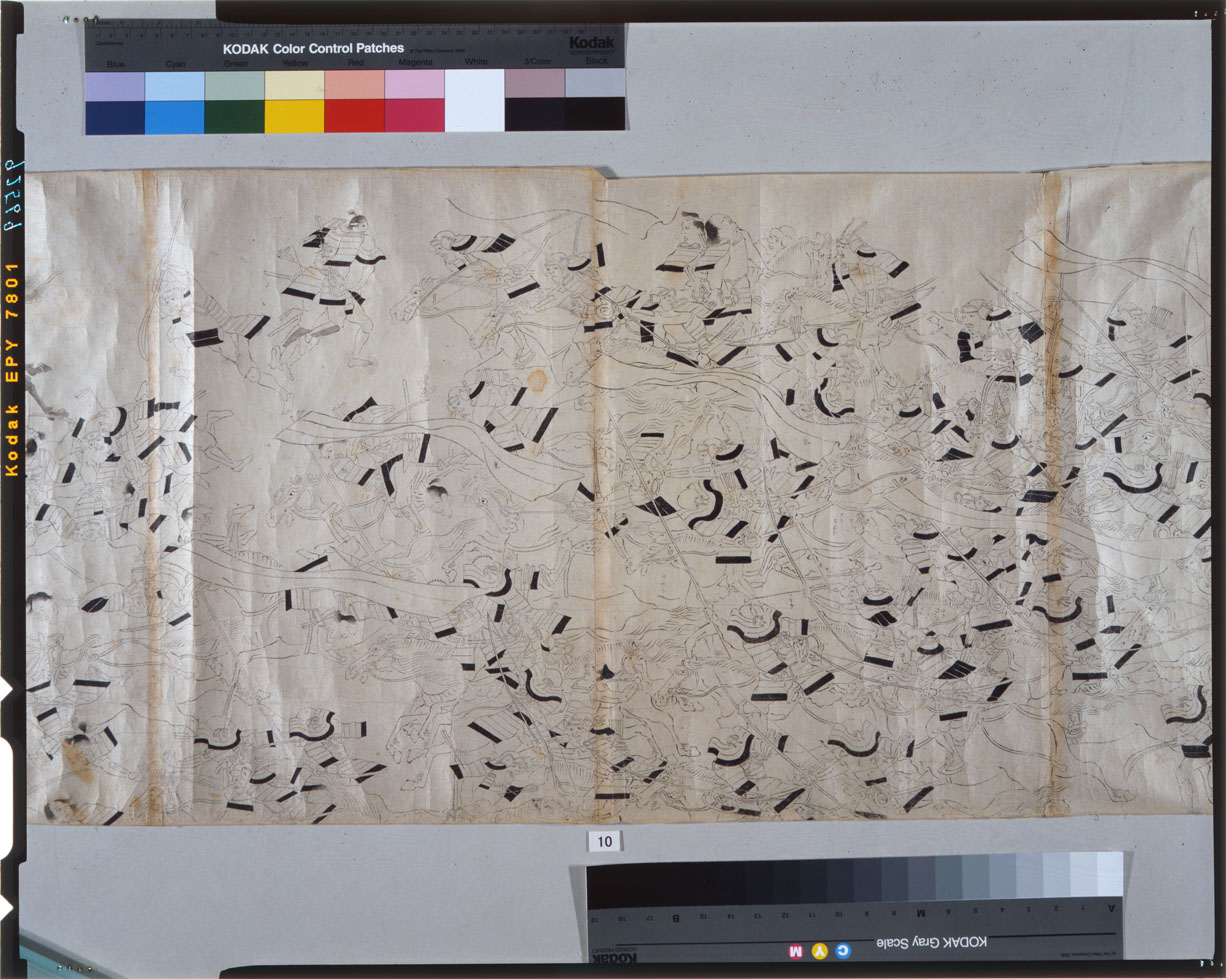 KODAK Color Control Patches
Kodak
Centimetres
Blue
Cyan
Green
Yellow
Red
Magenta
White
3/Color
Black
Kodak EPY 7801
10
A 1 2 3 4 5 6 M 8 9 10 11 12 13 14 15 B 17 18 19
KODAK Gray Scale
C Y M
Kodak